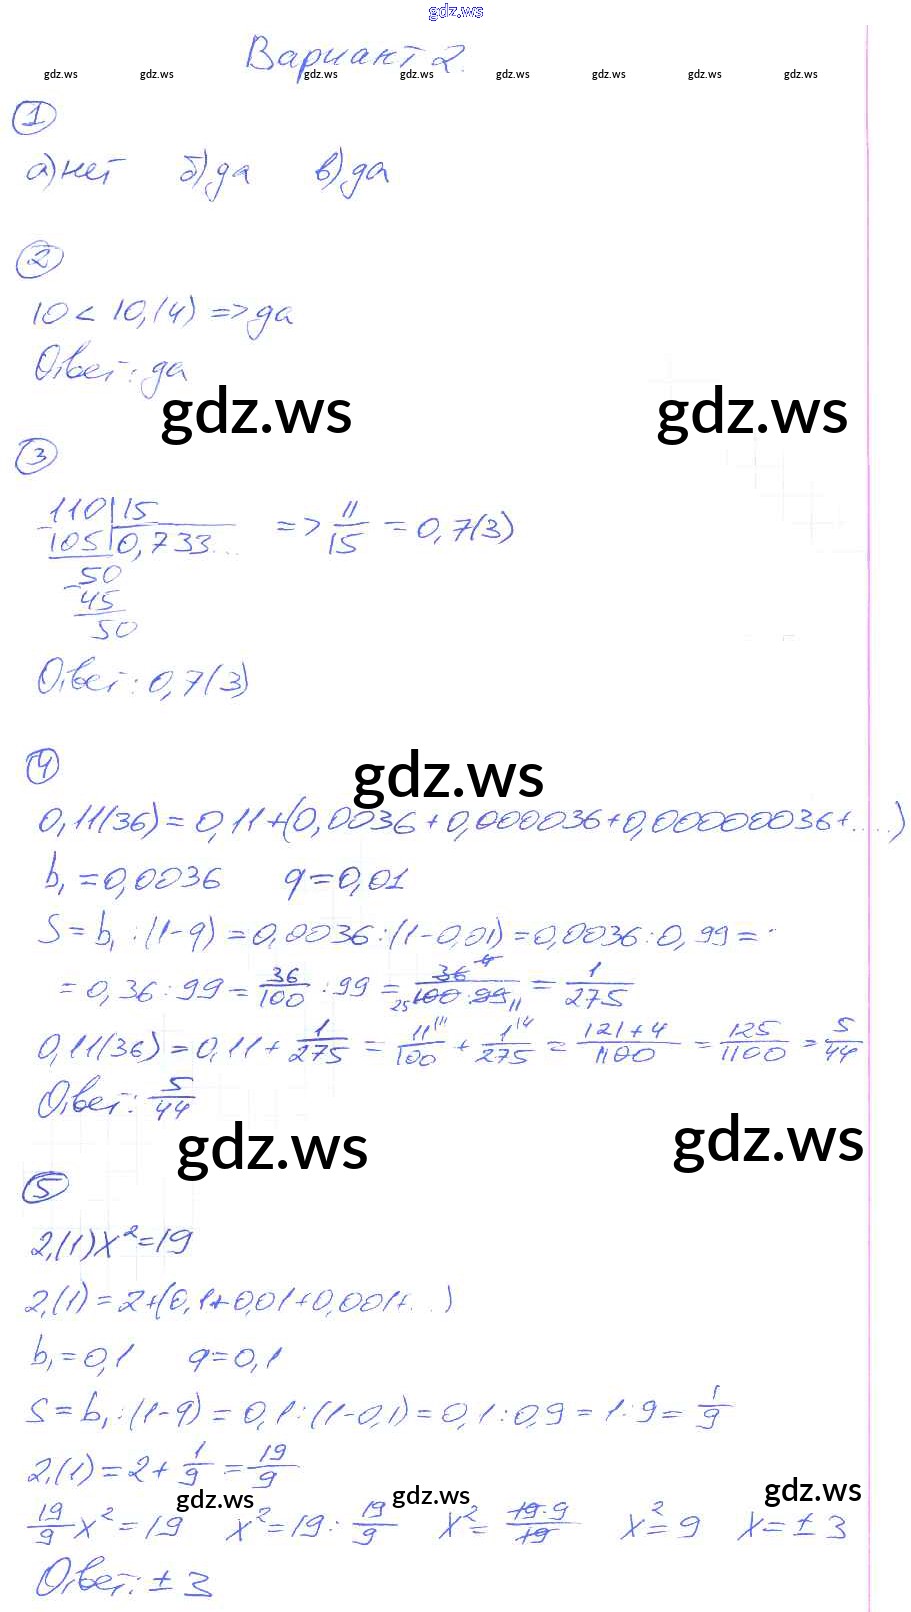 gdz.ws
Вариант 2.
gdz.ws gdz.ws gdz.ws gdz.ws gdz.ws gdz.ws gdz.ws gdz.ws
1
а) нет б) да в) да
2
10 < 10,(4) => да
Ответ: да
gdz.ws gdz.ws
3
110 | 15 => 11/15 = 0,7(3)
- 105 | 0,733...
50
- 45
50
Ответ: 0,7(3)
4
gdz.ws
0,11(36) = 0,11 + (0,0036 + 0,000036 + 0,00000036 + ....)
b₁ = 0,0036 q = 0,01
S = b₁ : (1-q) = 0,0036 : (1-0,01) = 0,0036 : 0,99 =
= 0,36 : 99 = 36/100 : 99 = 36 4/25 100 · 99 11 = 1/275
0,11(36) = 0,11 + 1/275 = 11 \11/100 + 1 \4/275 = 121+4/1100 = 125/1100 = 5/44
Ответ: 5/44
gdz.ws gdz.ws
5
2,(1)x² = 19
2,(1) = 2 + (0,1 + 0,01 + 0,001 + ...)
b₁ = 0,1 q = 0,1
S = b₁ : (1-q) = 0,1 : (1-0,1) = 0,1 : 0,9 = 1 : 9 = 1/9
2,(1) = 2 + 1/9 = 19/9
gdz.ws gdz.ws gdz.ws
19/9 x² = 19 x² = 19 : 19/9 x² = 19·9/19 x² = 9 x = ± 3
Ответ: ± 3